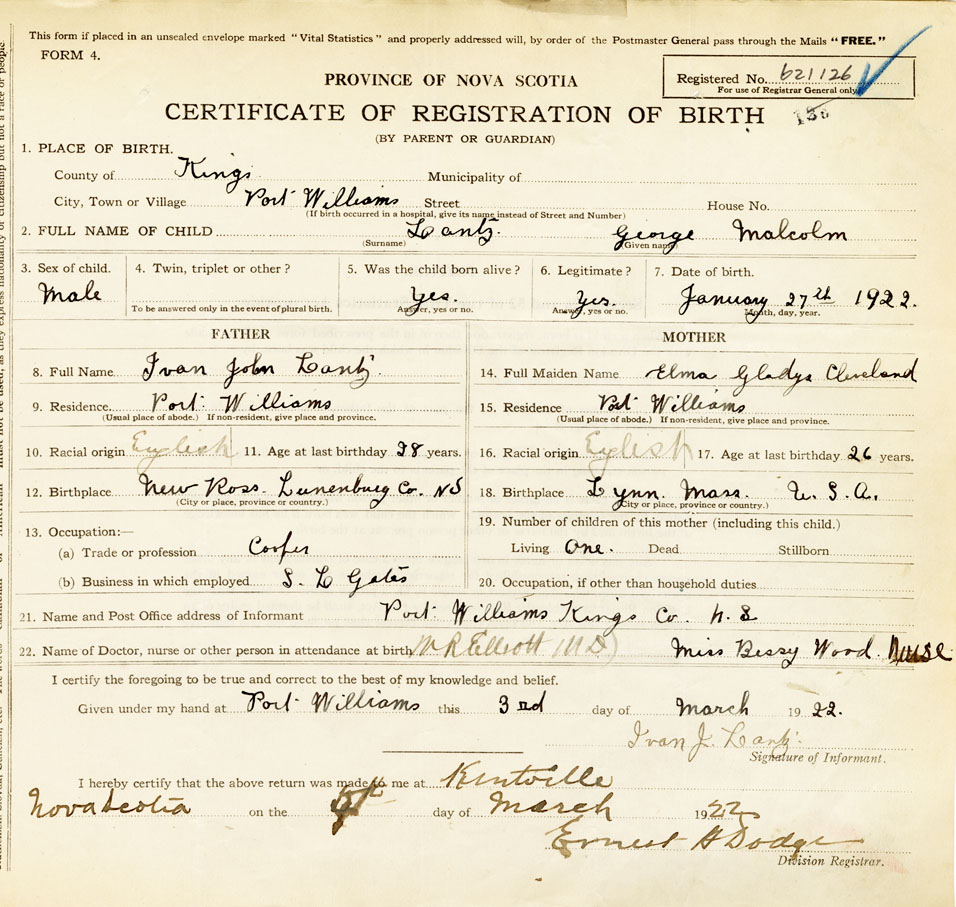 This form if placed in an unsealed envelope marked "Vital Statistics" and properly addressed will, by order of the Postmaster General pass through the Mails "FREE."
FORM 4.
PROVINCE OF NOVA SCOTIA
Registered No. 621126
For use of Registrar General only
CERTIFICATE OF REGISTRATION OF BIRTH
(BY PARENT OR GUARDIAN)
1. PLACE OF BIRTH.
County of Kings Municipality of
City, Town or Village Port Williams Street House No.
(If birth occurred in a hospital, give its name instead of Street and Number)
2. FULL NAME OF CHILD Lantz. George Malcolm
(Surname) Given name
3. Sex of child. 4. Twin, triplet or other? 5. Was the child born alive? 6. Legitimate? 7. Date of birth.
Male Yes. Yes. January 27th 1922.
To be answered only in the event of plural birth. Answer, yes or no. Answer, yes or no. Month, day, year.
FATHER MOTHER
8. Full Name Ivan John Lantz 14. Full Maiden Name Elma Gladys Cleveland
9. Residence. Port Williams 15. Residence Port Williams
(Usual place of abode.) If non-resident, give place and province. (Usual place of abode.) If non-resident, give place and province.
10. Racial origin English 11. Age at last birthday 28 years. 16. Racial origin English 17. Age at last birthday 26 years.
12. Birthplace New Ross. Lunenburg Co. NS 18. Birthplace Lynn. Mass. U. S. A.
(City or place, province or country.) (City or place, province or country.)
13. Occupation:— 19. Number of children of this mother (including this child.)
(a) Trade or profession Cooper Living One. Dead Stillborn
(b) Business in which employed S. L Gates 20. Occupation, if other than household duties
21. Name and Post Office address of Informant Port Williams Kings Co. N. S
22. Name of Doctor, nurse or other person in attendance at birth M R Elliott (MD) Miss Bessy Wood. Nurse
I certify the foregoing to be true and correct to the best of my knowledge and belief.
Given under my hand at Port Williams this 3rd day of March 1922.
Ivan J. Lantz.
Signature of Informant.
I hereby certify that the above return was made to me at Kentville
Nova Scotia on the day of March 1922
Ernest H Dodge
Division Registrar.